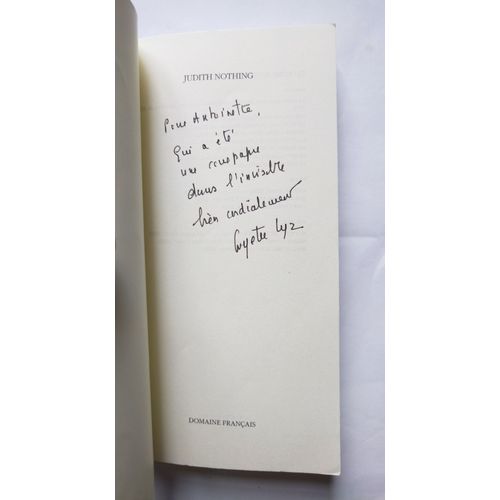 JUDITH NOTHING
Pour Antoinette,
qui a été
une
dans l'invisible
bien cordialement
DOMAINE FRANÇAIS